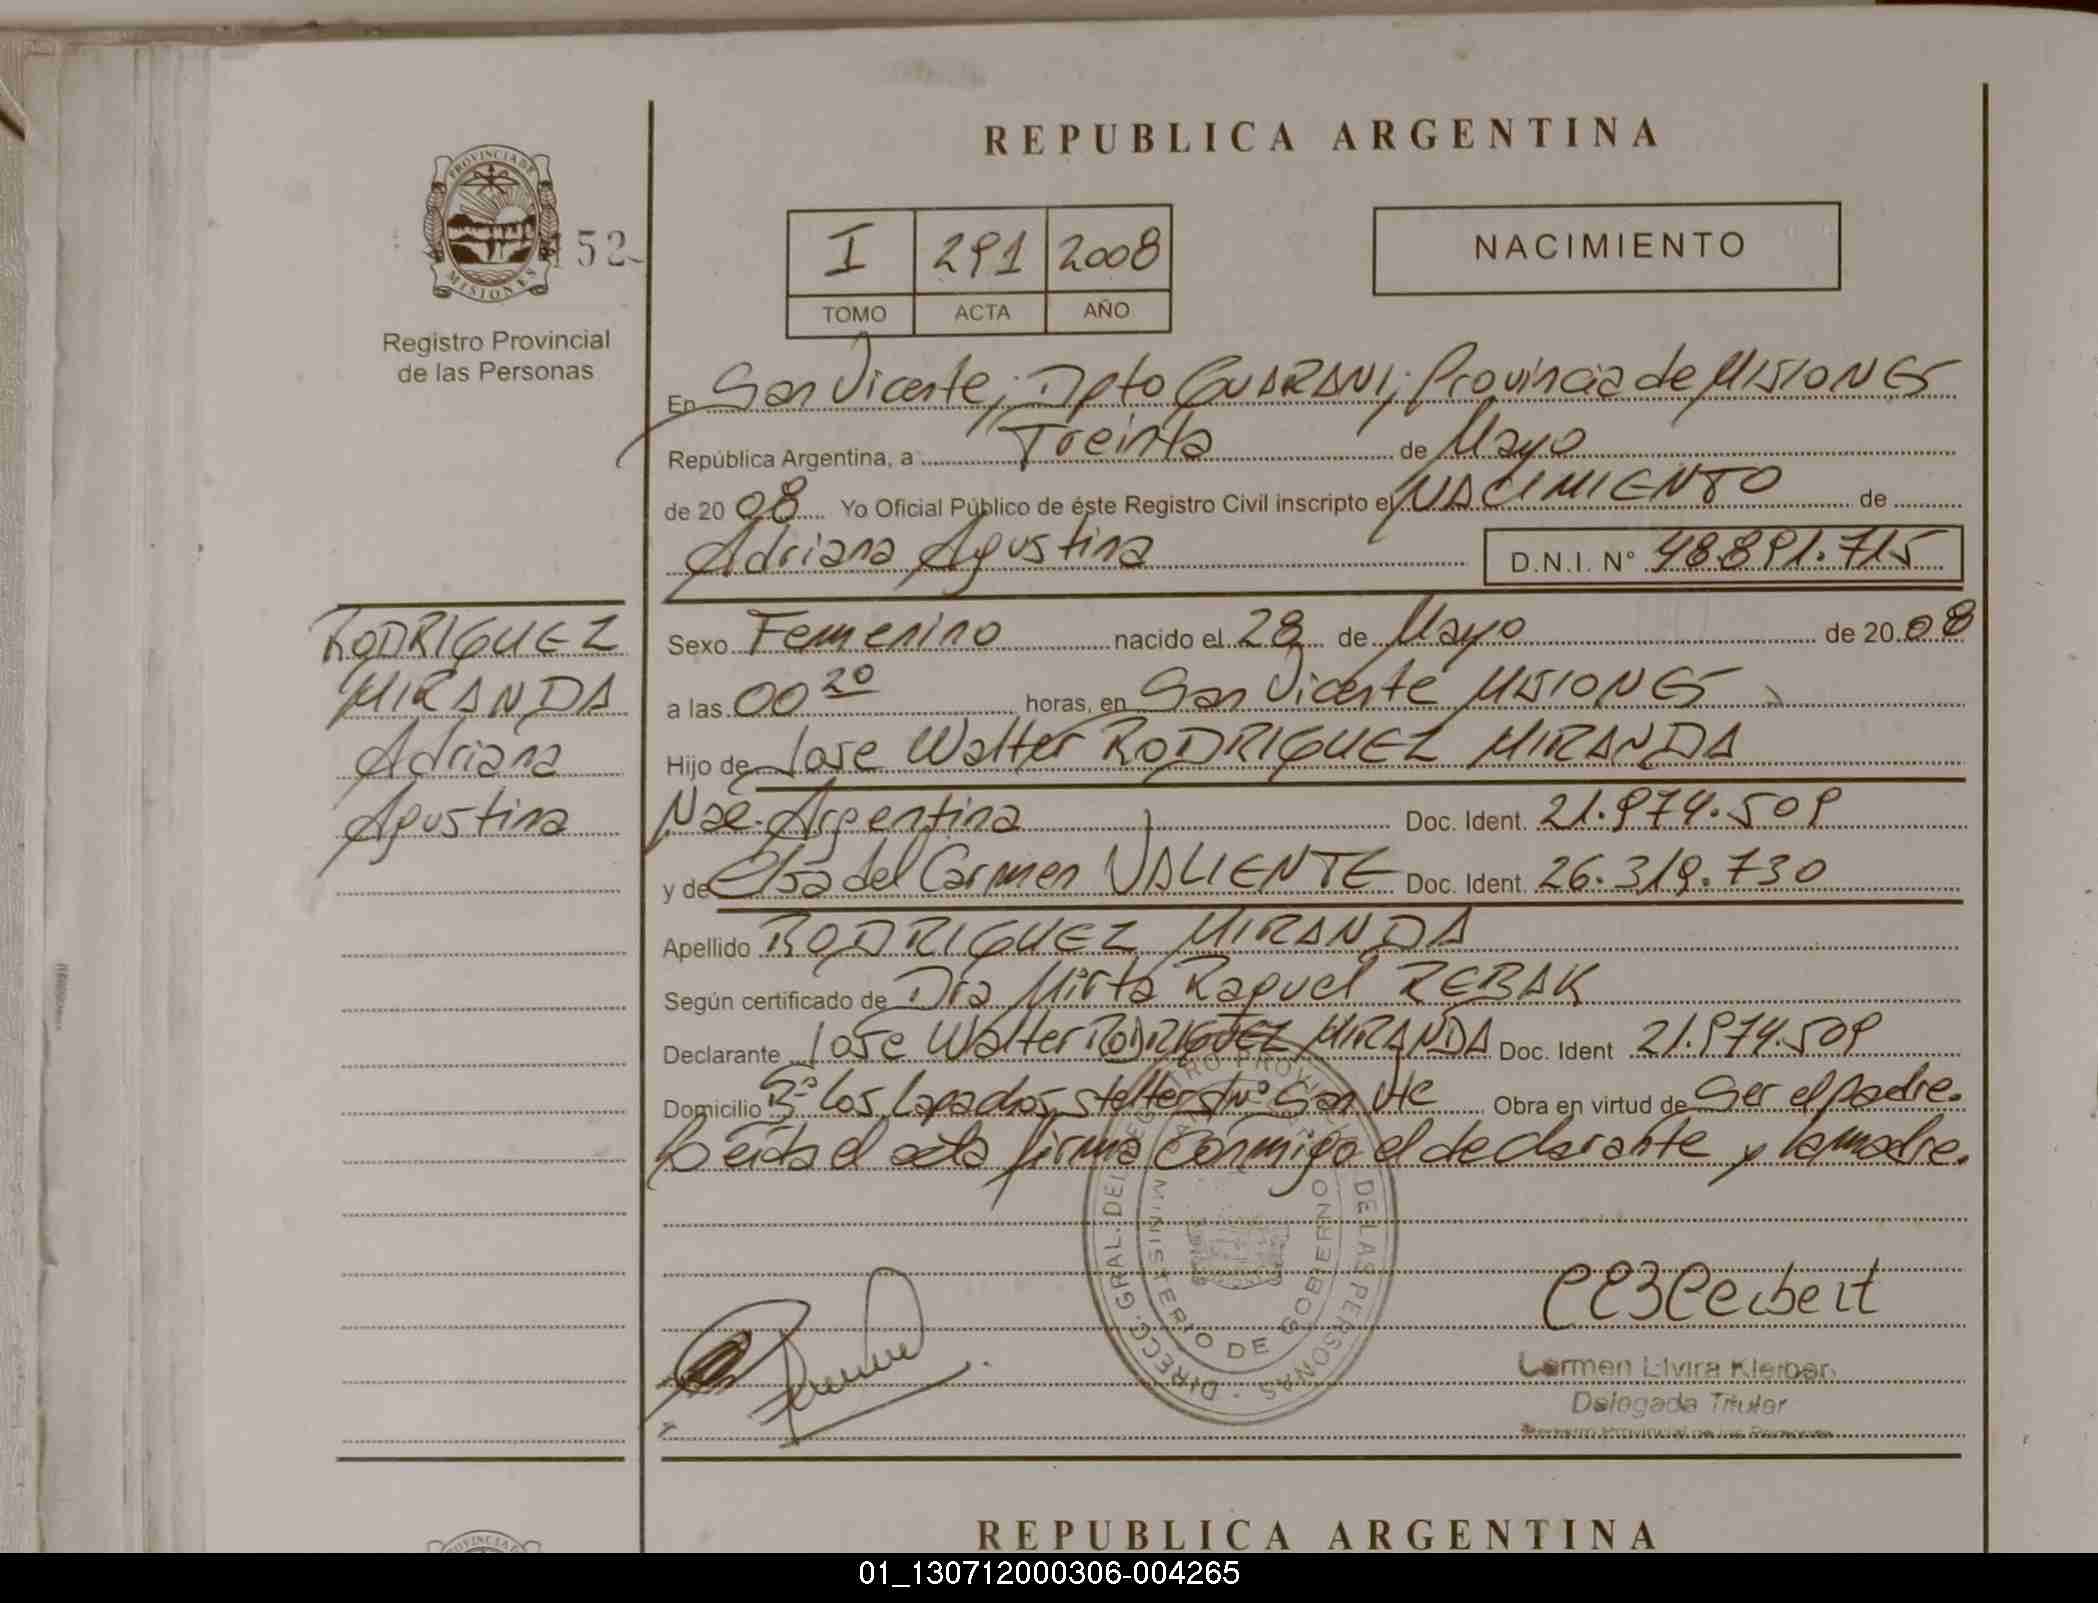 REPUBLICA ARGENTINA
PROVINCIA DE MISIONES
152
Registro Provincial
de las Personas
I 291 2008
TOMO ACTA AÑO
NACIMIENTO
En San Vicente, Dpto GUARANI, Provincia de MISIONES
República Argentina, a Treinta de Mayo
de 20 08 Yo Oficial Público de éste Registro Civil inscripto el NACIMIENTO de
Adriana Agustina D.N.I. N° 48.891.715
RODRIGUEZ
MIRANDA
Adriana
Agustina
Sexo Femenino nacido el 28 de Mayo de 20 08
a las 00 20 horas, en San Vicente MISIONES
Hijo de Jose Walter RODRIGUEZ MIRANDA
Nac. Argentina Doc. Ident. 21.974.509
y de Elsa del Carmen VALIENTE Doc. Ident. 26.319.730
Apellido RODRIGUEZ MIRANDA
Según certificado de Dra Mirta Raquel REBAK
Declarante Jose Walter RODRIGUEZ MIRANDA Doc. Ident 21.974.509
Domicilio Bº Los Lapachos San Vte Obra en virtud de Ser el padre.
Leida el acta firma conmigo el declarante y la madre.
DIRECC. GRAL. DEL REGISTRO PROVINCIAL DE LAS PERSONAS
MINISTERIO DE GOBIERNO
Carmen Elvira Kleiber
Delegada Titular
Registro Provincial de las Personas
REPUBLICA ARGENTINA
01_130712000306-004265